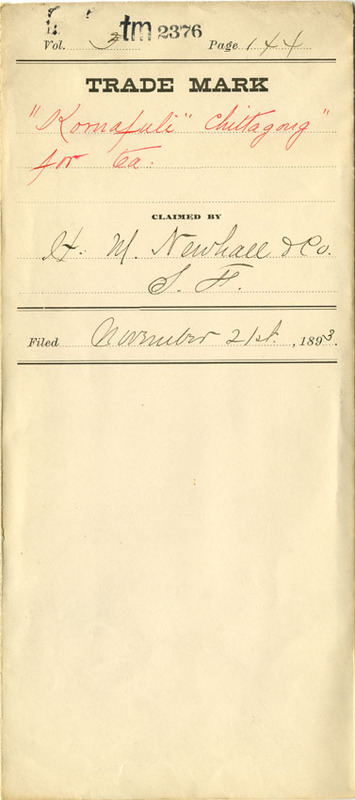 tm 2376
Vol. 3 Page 144
TRADE MARK
"Kornafuli" Chittagong"
for tea.
CLAIMED BY
H. M. Newhall & Co.
S. F.
Filed November 21st. , 1893.